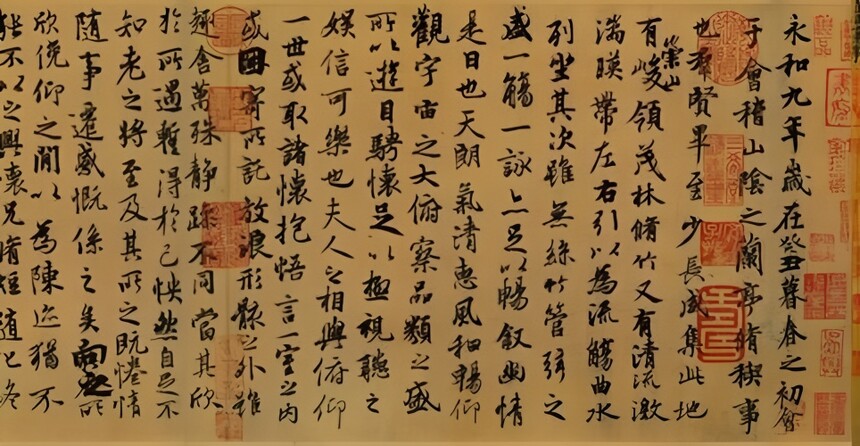 永和九年歲在癸丑暮春之初會
于會稽山陰之蘭亭脩稧事
也群賢畢至少長咸集此地
有崇山峻領茂林脩竹又有清流激
湍暎帶左右引以為流觴曲水
列坐其次雖無絲竹管弦之
盛一觴一詠亦足以暢敘幽情
是日也天朗氣清惠風和暢仰
觀宇宙之大俯察品類之盛
所以遊目騁懷足以極視聽之
娛信可樂也夫人之相與俯仰
一世或取諸懷抱悟言一室之內
或因寄所託放浪形骸之外雖
趣舍萬殊静躁不同當其欣
於所遇蹔得於己怏然自足不
知老之將至及其所之既惓情
隨事遷感慨係之矣向之所
欣俛仰之閒以為陳迹猶不
能不以之興懷況脩短隨化終